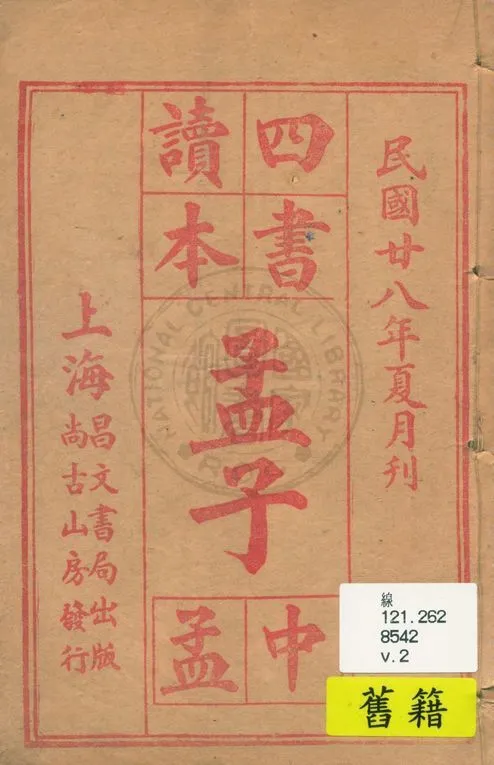 民國廿八年夏月刊
四書
讀本
孟子
中
孟
上海
昌文書局出版
尚古山房發行
NATIONAL CENTRAL LIBRARY
線
121.262
8542
v.2
舊籍